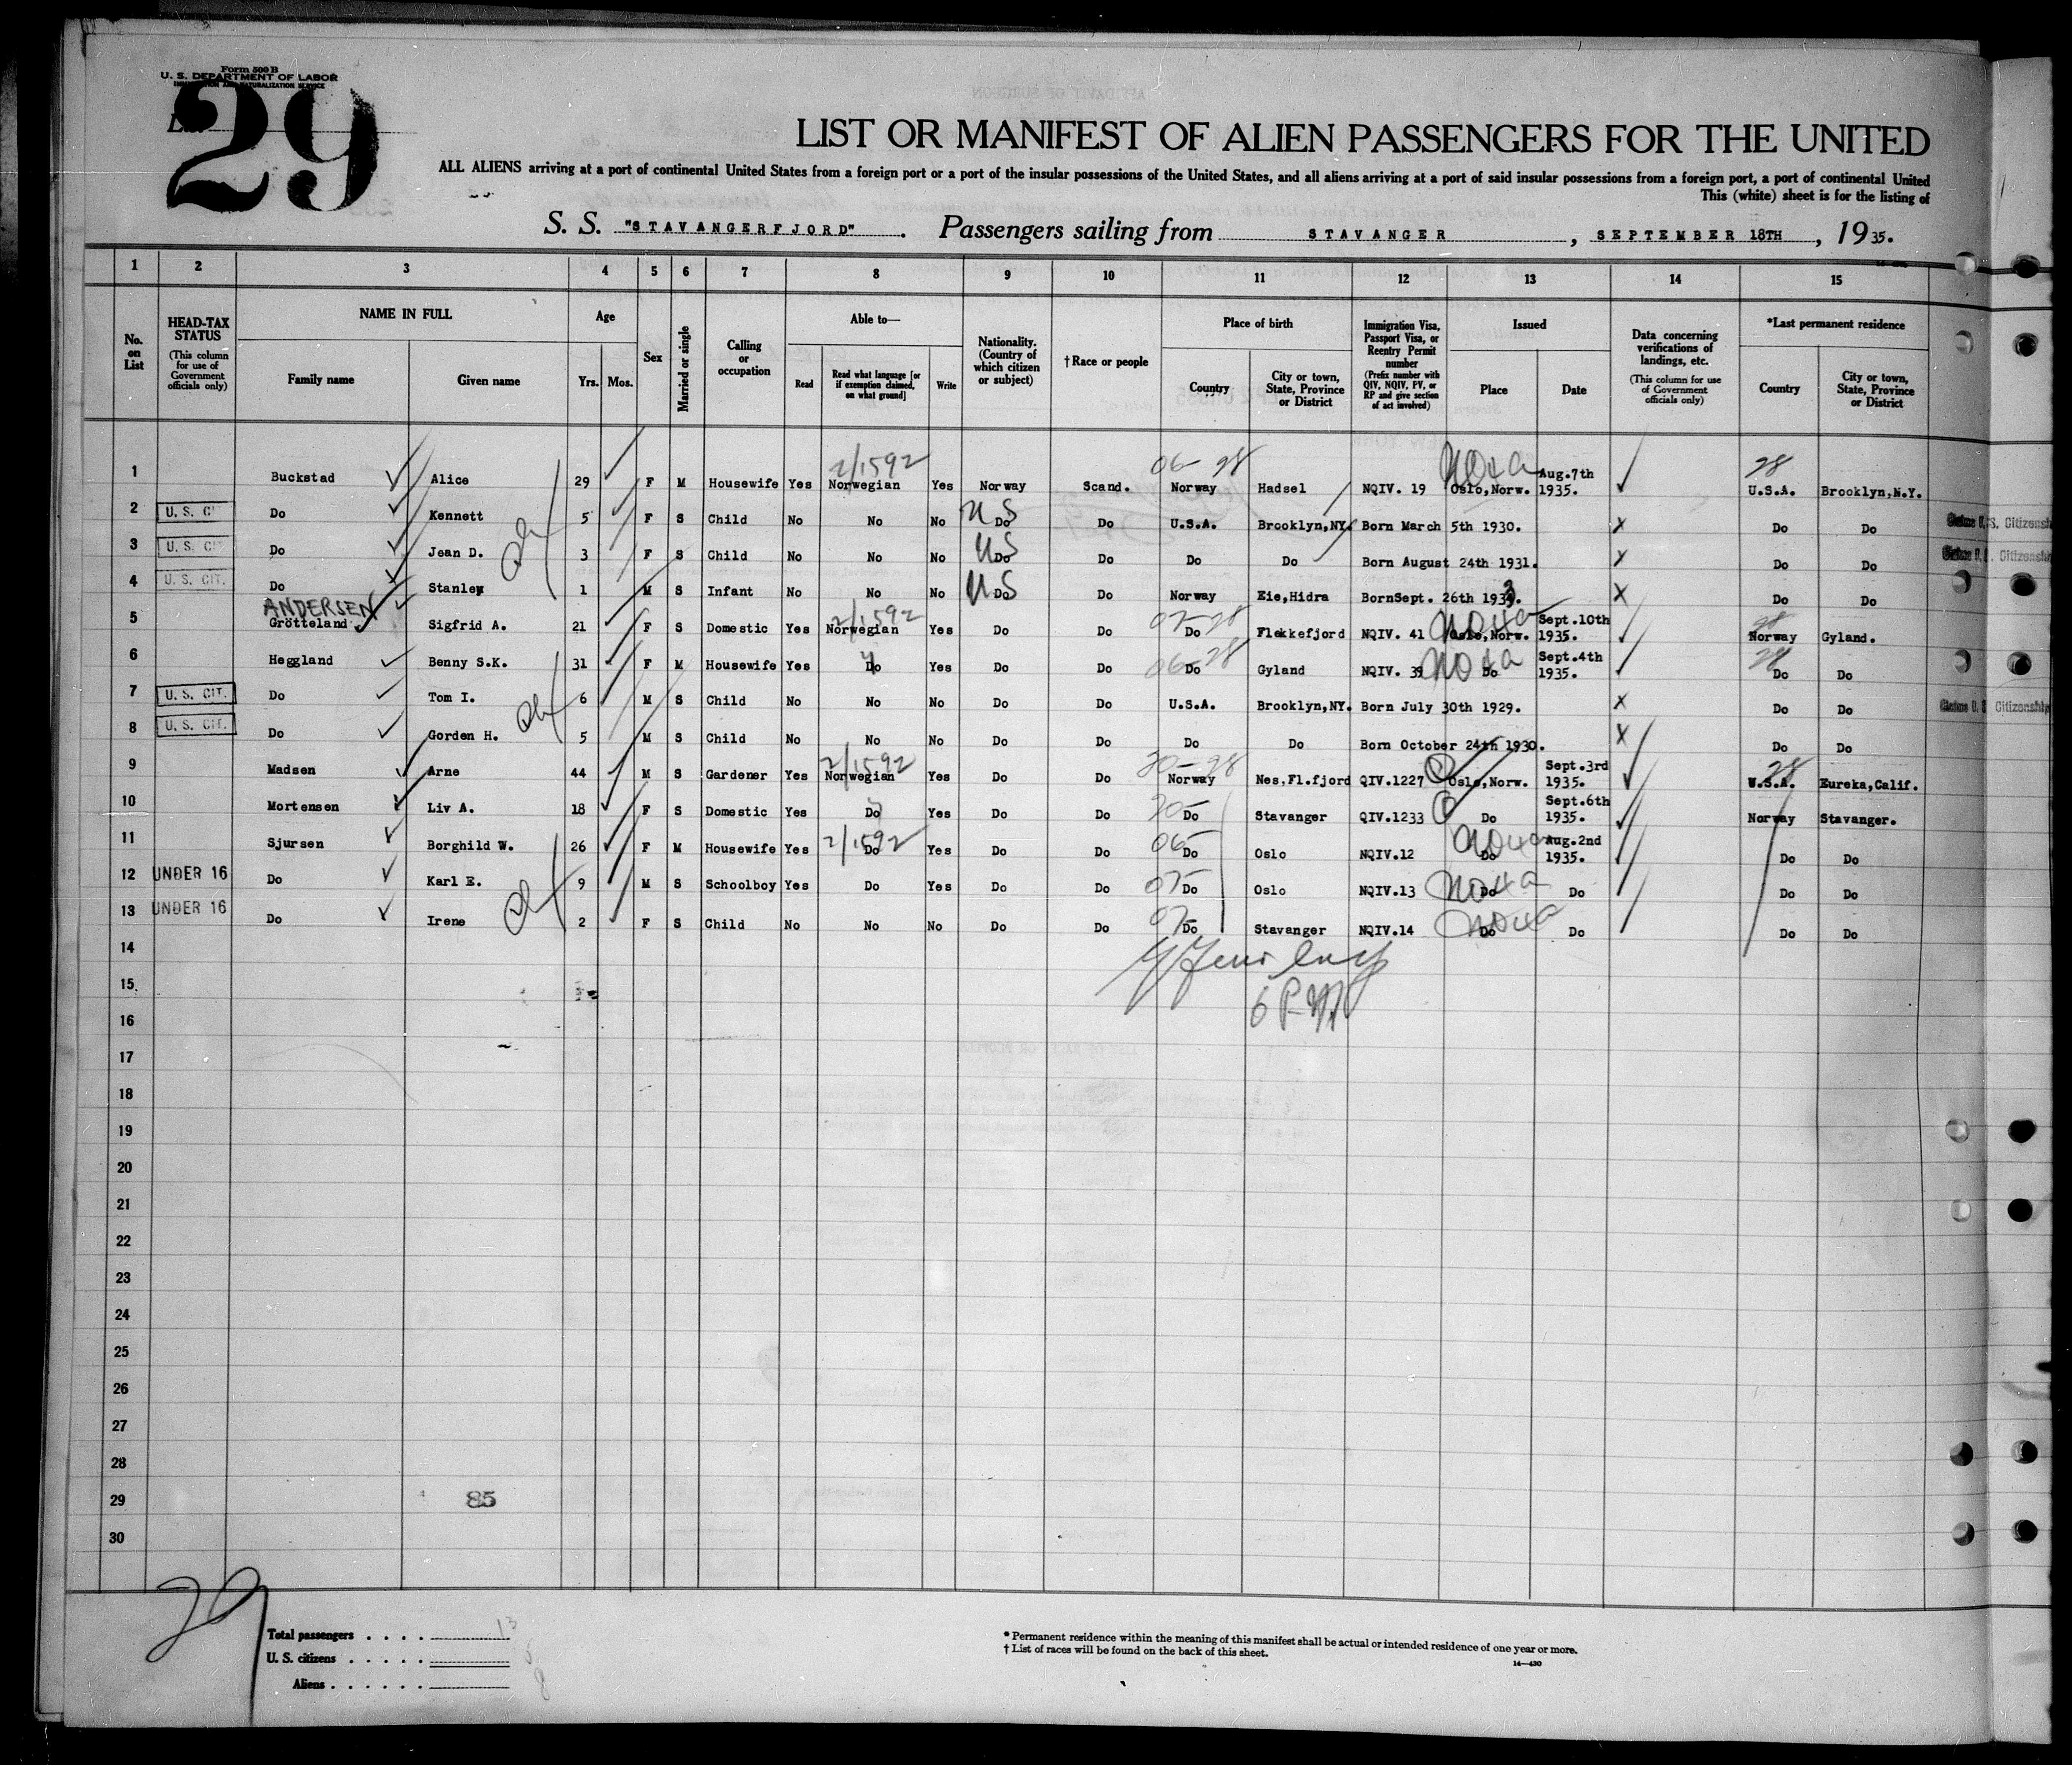 Form 500 B
U. S. DEPARTMENT OF LABOR
IMMIGRATION AND NATURALIZATION SERVICE
29
LIST OR MANIFEST OF ALIEN PASSENGERS FOR THE UNITED
ALL ALIENS arriving at a port of continental United States from a foreign port or a port of the insular possessions of the United States, and all aliens arriving at a port of said insular possessions from a foreign port, a port of continental United
This (white) sheet is for the listing of
S. S. "STAVANGERFJORD". Passengers sailing from STAVANGER, SEPTEMBER 18TH, 1935.
1 2 3 4 5 6 7 8 9 10 11 12 13 14 15
No. on List
HEAD-TAX STATUS (This column for use of Government officials only)
NAME IN FULL Family name Given name
Age Yrs. Mos.
Sex
Married or single
Calling or occupation
Able to— Read Read what language [or if exemption claimed, on what ground] Write
Nationality. (Country of which citizen or subject)
†Race or people
Place of birth Country City or town, State, Province or District
Immigration Visa, Passport Visa, or Reentry Permit number (Prefix number with QIV, NQIV, PV, or RP and give section of act involved)
Issued Place Date
Data concerning verifications of landings, etc. (This column for use of Government officials only)
*Last permanent residence Country City or town, State, Province or District
2/1592 06- 28 NO4a 28
1 Buckstad Alice 29 F M Housewife Yes Norwegian Yes Norway Scand. Norway Hadsel NQIV. 19 Oslo, Norw. Aug.7th 1935. U.S.A. Brooklyn, N.Y.
2 U. S. CI Do Kennett 5 F S Child No No No US Do Do U.S.A. Brooklyn, NY. Born March 5th 1930. X Do Do Claims U. S. Citizensh
3 U. S. CI Do Jean D. 3 F S Child No No No US Do Do Do Do Born August 24th 1931. X Do Do Claims U. S. Citizenshi
4 U. S. CIT. Do Stanley 1 M S Infant No No No US Do Do Norway Eie, Hidra BornSept. 26th 1933. X Do Do
ANDERSEN 2/1592 07-28 NO4a 28
5 Grötteland Sigfrid A. 21 F S Domestic Yes Norwegian Yes Do Do Do Flekkefjord NQIV. 41 Oslo, Norw. Sept.10th 1935. Norway Gyland.
6 Heggland Benny S.K. 31 F M Housewife Yes Do Yes Do Do 06-28 Do Gyland NQIV. 39 NO4a Do Sept.4th 1935. 28 Do Do
7 U. S. CIT. Do Tom I. 6 M S Child No No No Do Do U.S.A. Brooklyn, NY. Born July 30th 1929. X Do Do Claims U. S Citizenship
8 U. S. CIT. Do Gorden H. 5 M S Child No No No Do Do Do Do Born October 24th 1930. X Do Do
9 Madsen Arne 44 M S Gardener Yes 2/1592 Norwegian Yes Do Do 20-28 Norway Nes, Fl.fjord QIV.1227 Oslo, Norw. Sept.3rd 1935. 28 U.S.A. Eureka, Calif.
10 Mortensen Liv A. 18 F S Domestic Yes Do Yes Do Do 20- Do Stavanger QIV.1233 Do Sept.6th 1935. Norway Stavanger.
11 Sjursen Borghild W. 26 F M Housewife Yes 2/1592 Do Yes Do Do 06- Do Oslo NQIV.12 NO4a Do Aug.2nd 1935. Do Do
12 UNDER 16 Do Karl E. 9 M S Schoolboy Yes Do Yes Do Do 07- Do Oslo NQIV.13 NO4a Do Do Do Do
13 UNDER 16 Do Irene 2 F S Child No No No Do Do 07- Do Stavanger NQIV.14 NO4a Do Do Do Do
14
15
6 PM
16
17
18
19
20
21
22
23
24
25
26
27
28
29 85
30
29
Total passengers . . . . 13
U. S. citizens . . . . . 5
Aliens . . . . . . 8
* Permanent residence within the meaning of this manifest shall be actual or intended residence of one year or more.
† List of races will be found on the back of this sheet.
14—430